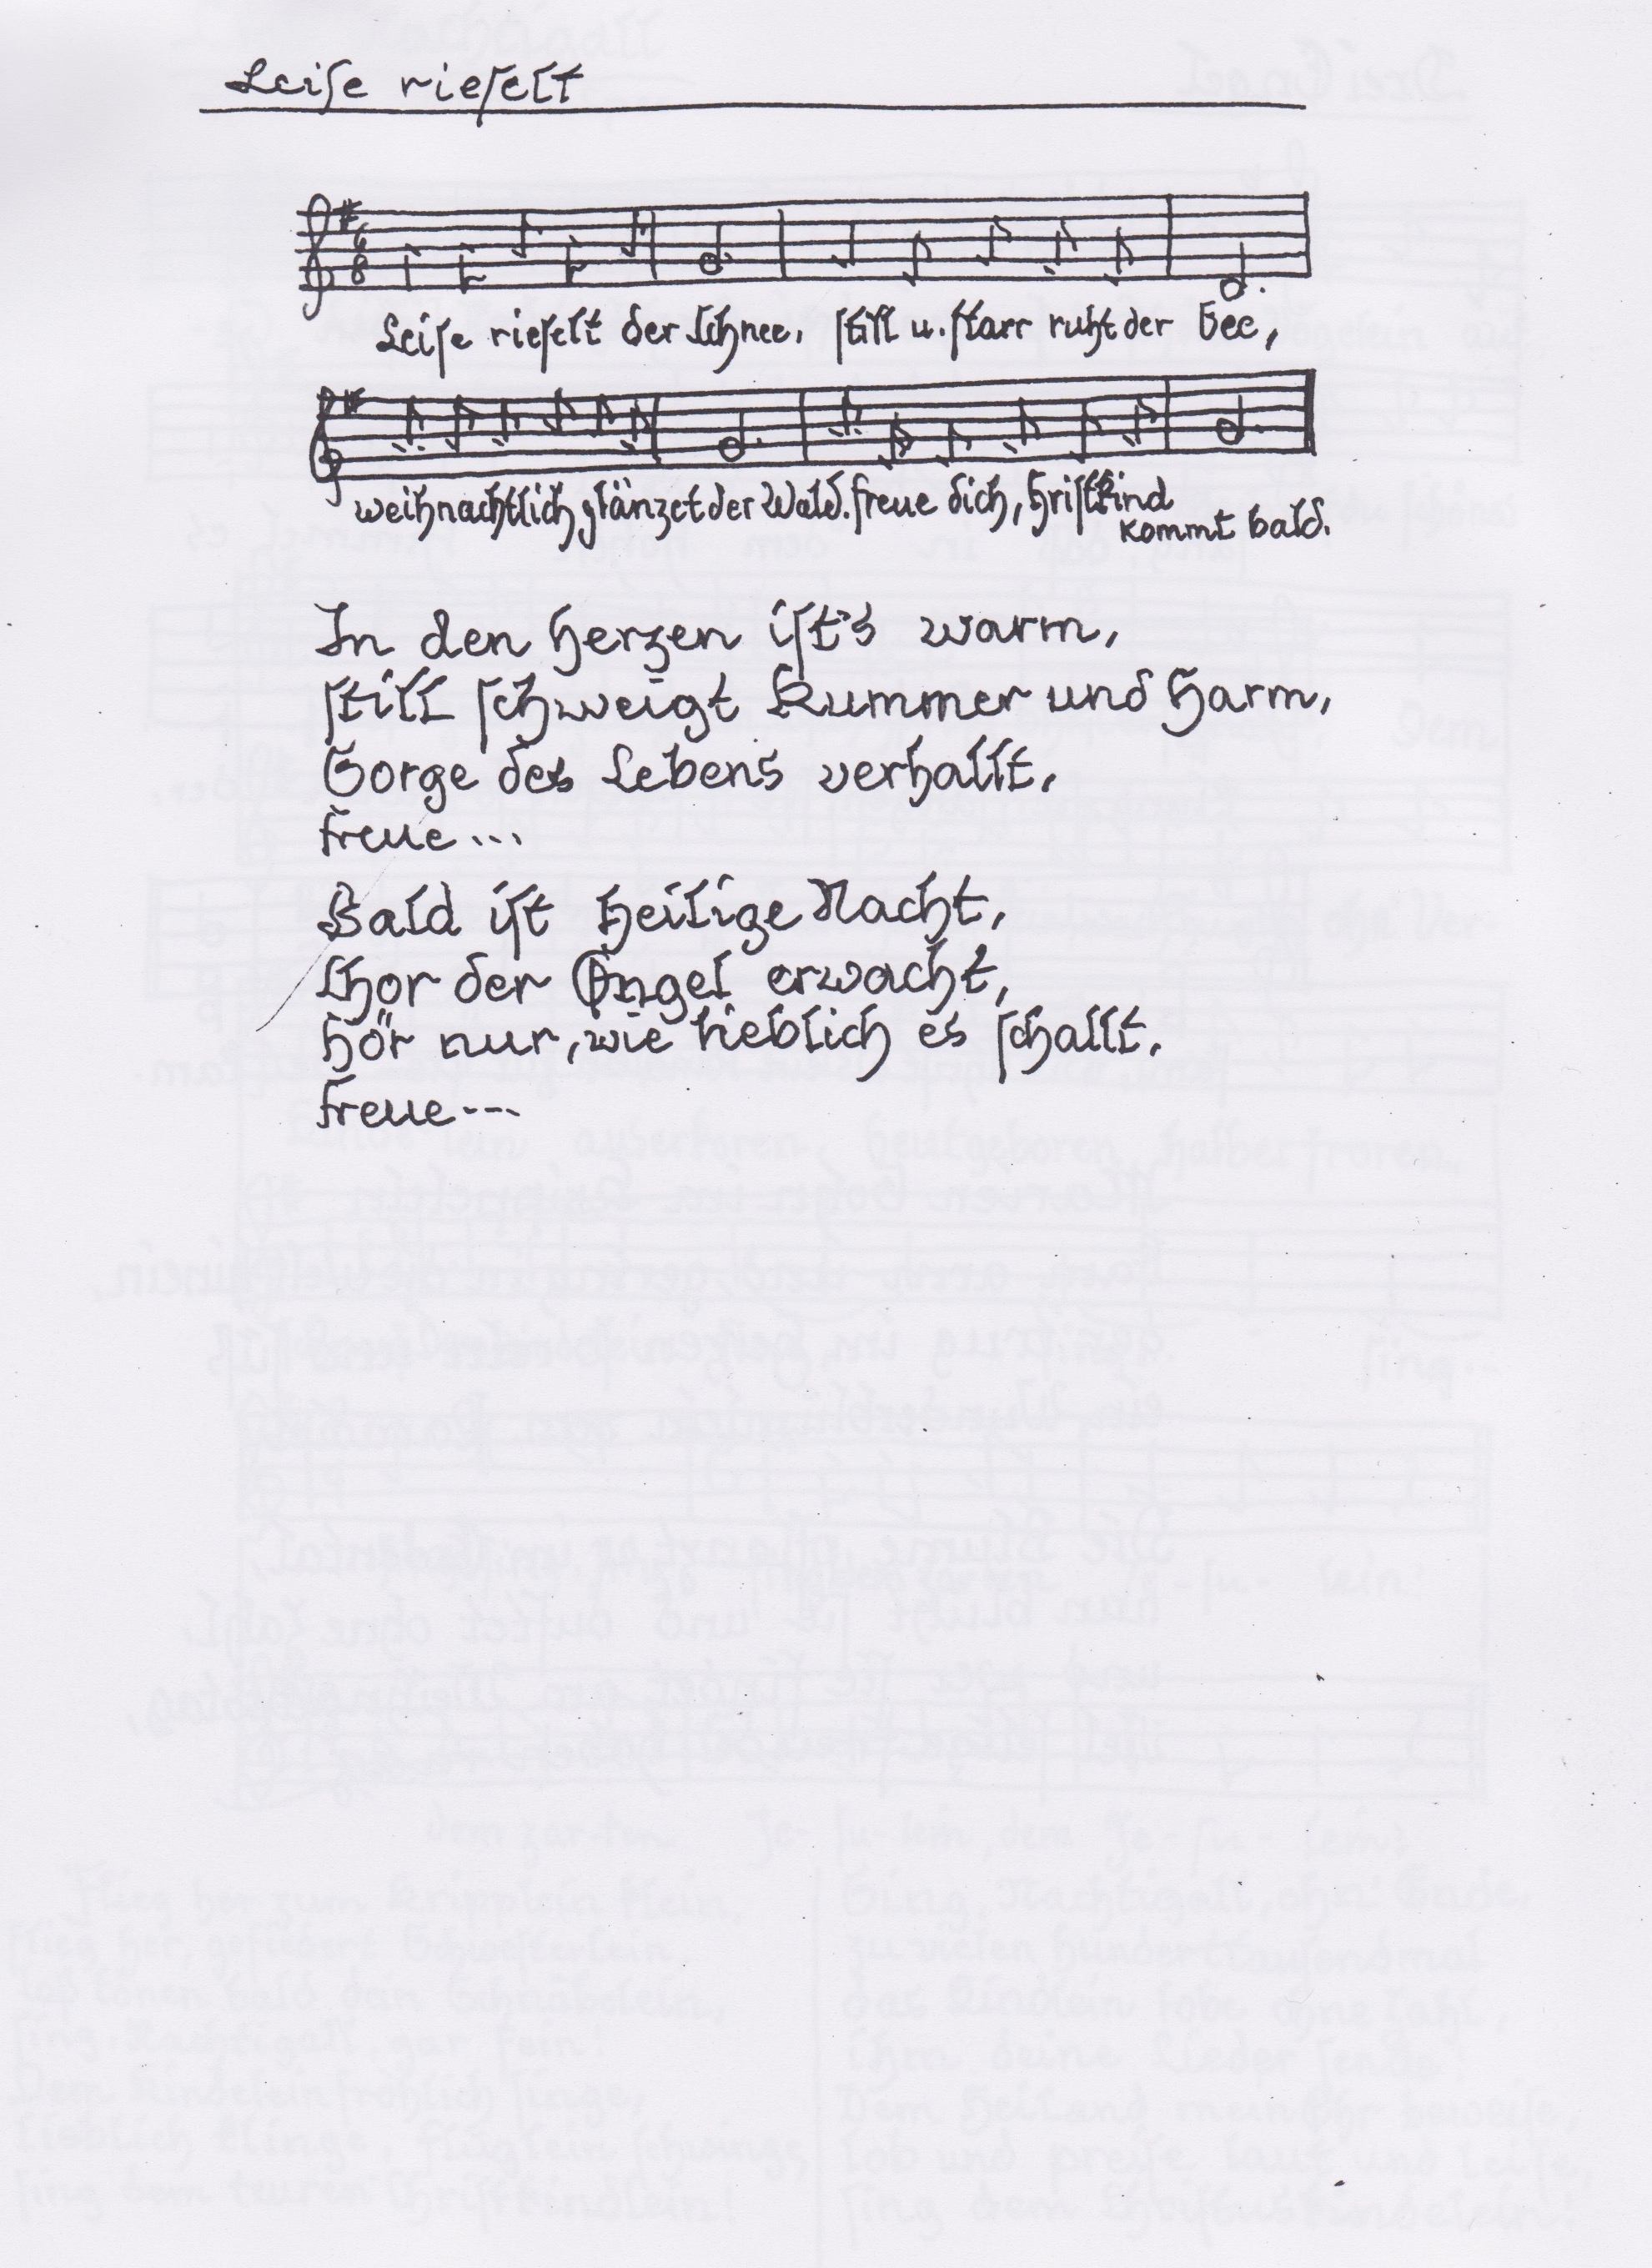 Leise rieselt
Leise rieselt der Schnee, still u. starr ruht der See,
weihnachtlich glänzet der Wald. Freue dich, Christkind
kommt bald.
In den Herzen ist's warm,
still schweigt Kummer und Harm,
Sorge des Lebens verhallt,
Freue...
Bald ist Heilige Nacht,
Chor der Engel erwacht,
hör nur, wie lieblich es schallt,
Freue---